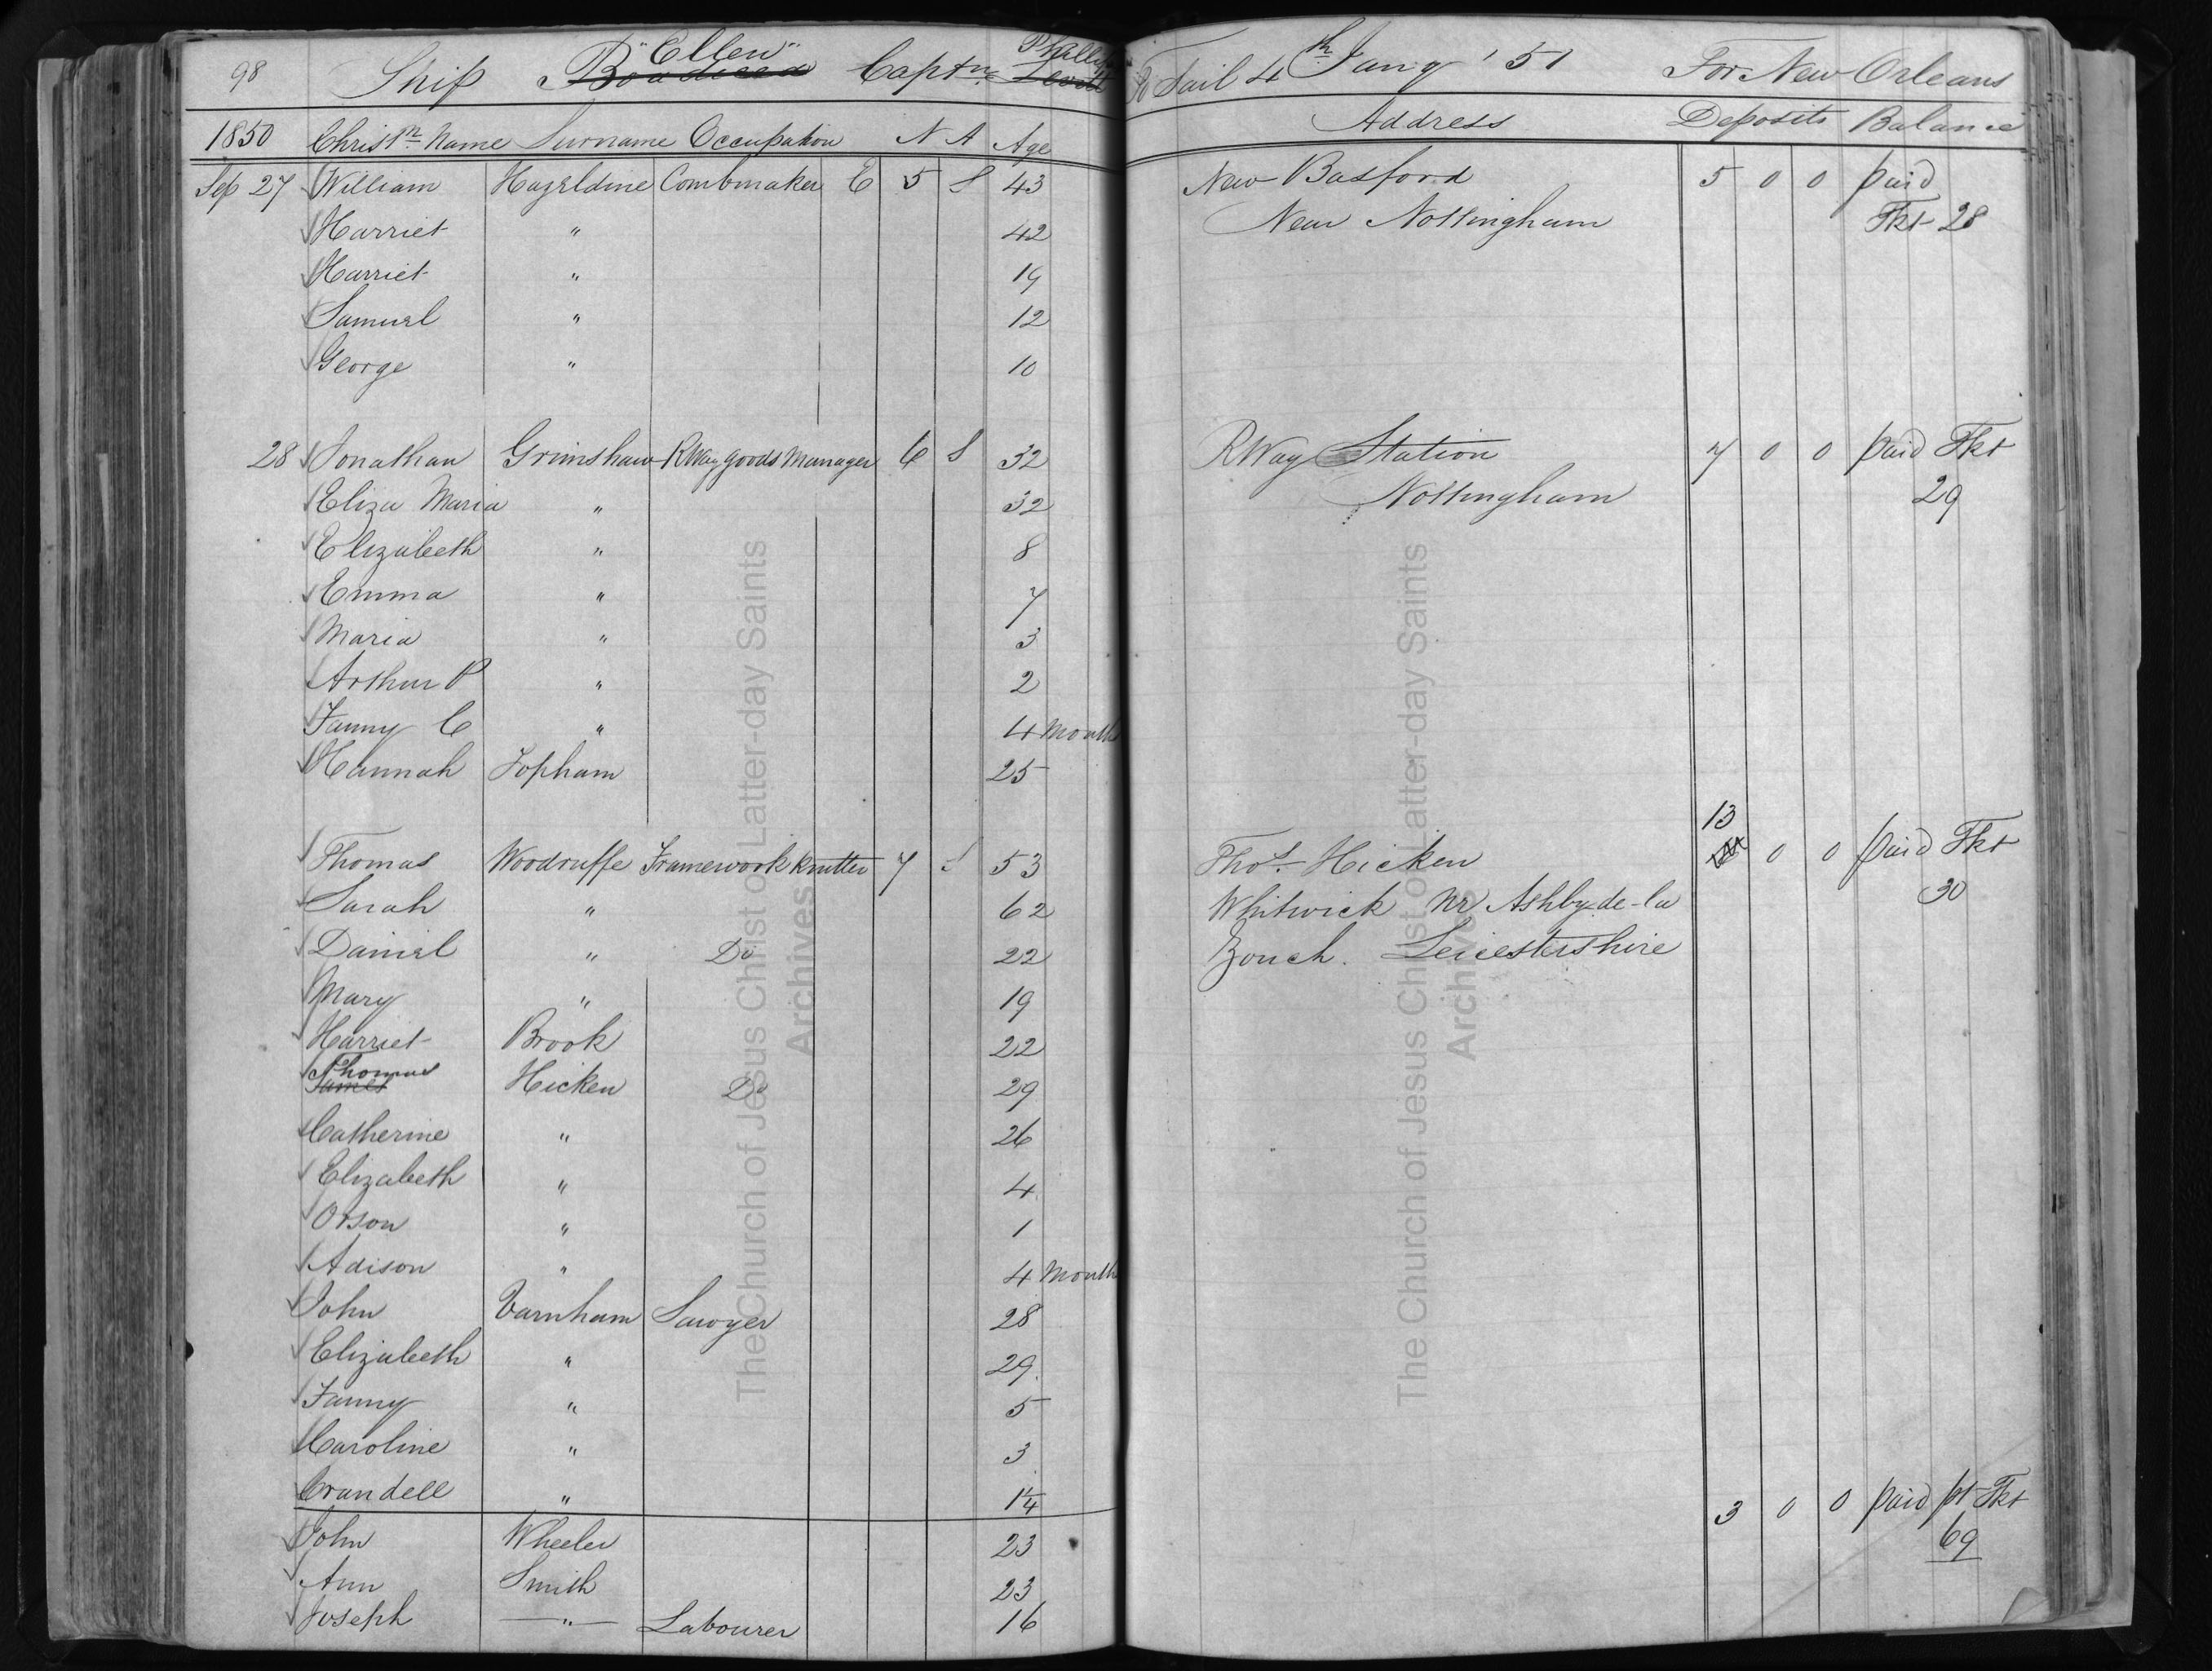 98 Ship "Ellen" Boadicea Captn. Phillips To Sail 4th Jany '51 For New Orleans
1850 Christn Name Surname Occupation N A Age Address Deposits Balance
Sep 27 William Hazeldine Combmaker E 5 S 43 New Basford 5 0 0 paid
Harriet " 42 Near Nottingham Tkt 28
Harriet " 19
Samuel " 12
George " 10
28 Jonathan Grimshaw RWay goods Manager 6 S 32 RWay Station 7 0 0 paid Tkt
Eliza Maria " 32 Nottingham 29
Elizabeth " 8
Emma " 7
Maria " 3
Arthur P " 2
Fanny C " 4 Months
Hannah Topham 25
13
Thomas Woodruffe Framework knitter 7 S 53 Thos. Hicken 0 0 paid Tkt
Sarah " 62 Whitwick Nr Ashby-de-la 30
Daniel " Do 22 Zouch. Leicestershire
Mary " 19
Harriet Brook 22
Thomas
James Hicken Do 29
Catherine " 26
Elizabeth " 4
Orson " 1
Adison " 4 Months
John Varnham Sawyer 28
Elizabeth " 29
Fanny " 5
Caroline " 3
Crandell " 1¼ 3 0 0 paid pt Tkt
John Wheeler 23 69
Ann Smith 23
Joseph " Labourer 16
The Church of Jesus Christ of Latter-day Saints
Archives
The Church of Jesus Christ of Latter-day Saints
Archives